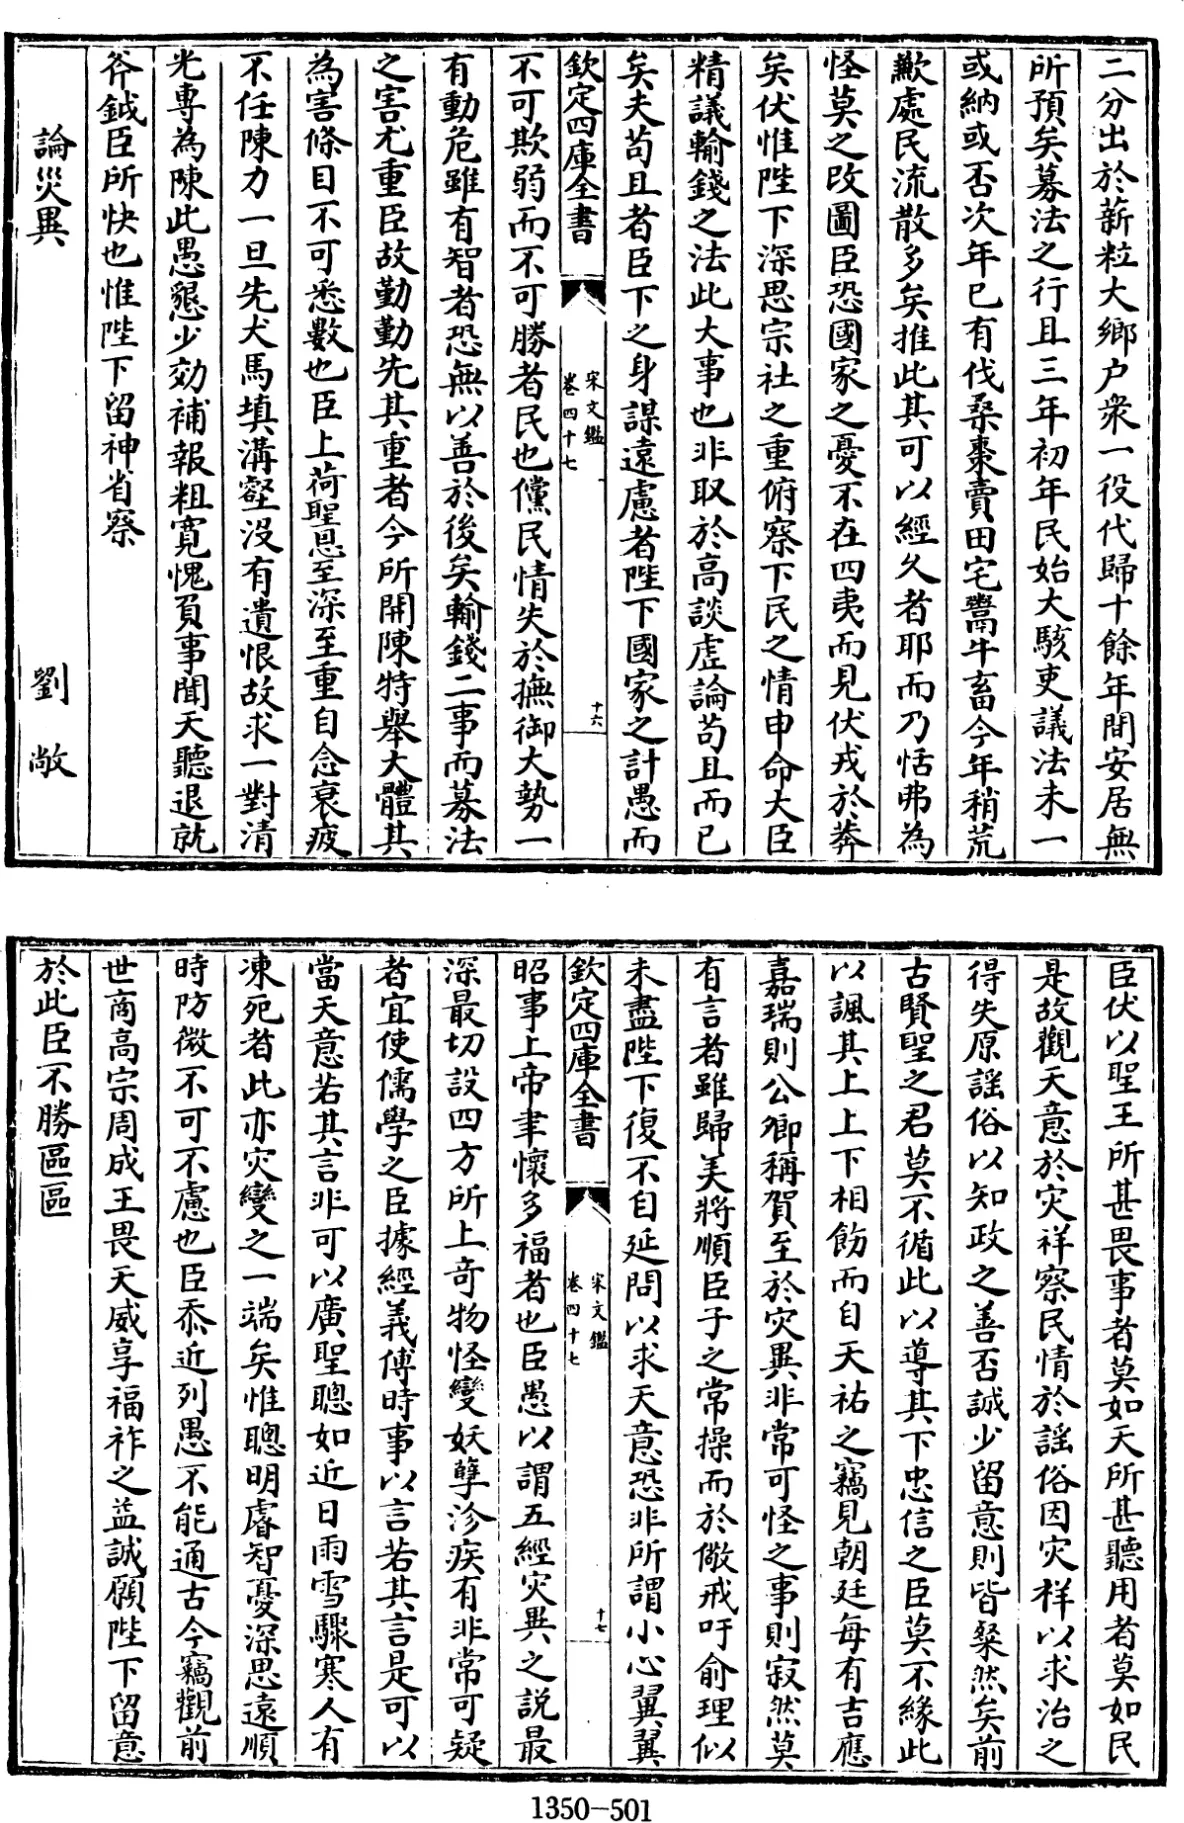 二分出於薪粒大鄉户衆一役代歸十餘年間安居無
所預矣募法之行且三年初年民始大駭吏議法未一
或納或否次年已有伐桑棗賣田宅鬻牛畜今年稍荒
歉處民流散多矣推此其可以經久者耶而乃恬弗為
怪莫之改圖臣恐國家之憂不在四夷而見伏戎於莽
矣伏惟陛下深思宗社之重俯察下民之情申命大臣
精議輸錢之法此大事也非取於高談虛論苟且而已
矣夫苟且者臣下之身謀遠慮者陛下國家之計愚而
欽定四庫全書
宋文鑑
卷四十七
十六
不可欺弱而不可勝者民也儻民情失於撫御大勢一
有動危雖有智者恐無以善於後矣輸錢二事而募法
之害尤重臣故勤勤先其重者今所開陳特舉大體其
為害條目不可悉數也臣上荷聖恩至深至重自念衰疲
不任陳力一旦先犬馬填溝壑沒有遺恨故求一對清
光專為陳此愚懇少効補報粗寛愧負事聞天聽退就
斧鉞臣所快也惟陛下留神省察
論災異 劉敞
臣伏以聖王所甚畏事者莫如天所甚聽用者莫如民
是故觀天意於灾祥察民情於謡俗因灾祥以求治之
得失原謡俗以知政之善否誠少留意則皆粲然矣前
古賢聖之君莫不循此以導其下忠信之臣莫不緣此
以諷其上上下相飭而自天祐之竊見朝廷每有吉應
嘉瑞則公卿稱賀至於灾異非常可怪之事則寂然莫
有言者雖歸美將順臣子之常操而於儆戒吁俞理似
未盡陛下復不自延問以求天意恐非所謂小心翼翼
欽定四庫全書
宋文鑑
卷四十七
十七
昭事上帝聿懷多福者也臣愚以謂五經灾異之説最
深最切設四方所上奇物怪變妖孽沴疾有非常可疑
者宜使儒學之臣據經義傅時事以言若其言是可以
當天意若其言非可以廣聖聰如近日雨雪驟寒人有
凍死者此亦灾變之一端矣惟聰明睿智憂深思遠順
時防微不可不慮也臣忝近列愚不能通古今竊觀前
世商高宗周成王畏天威享福祚之益誠願陛下留意
於此臣不勝區區
1350-501